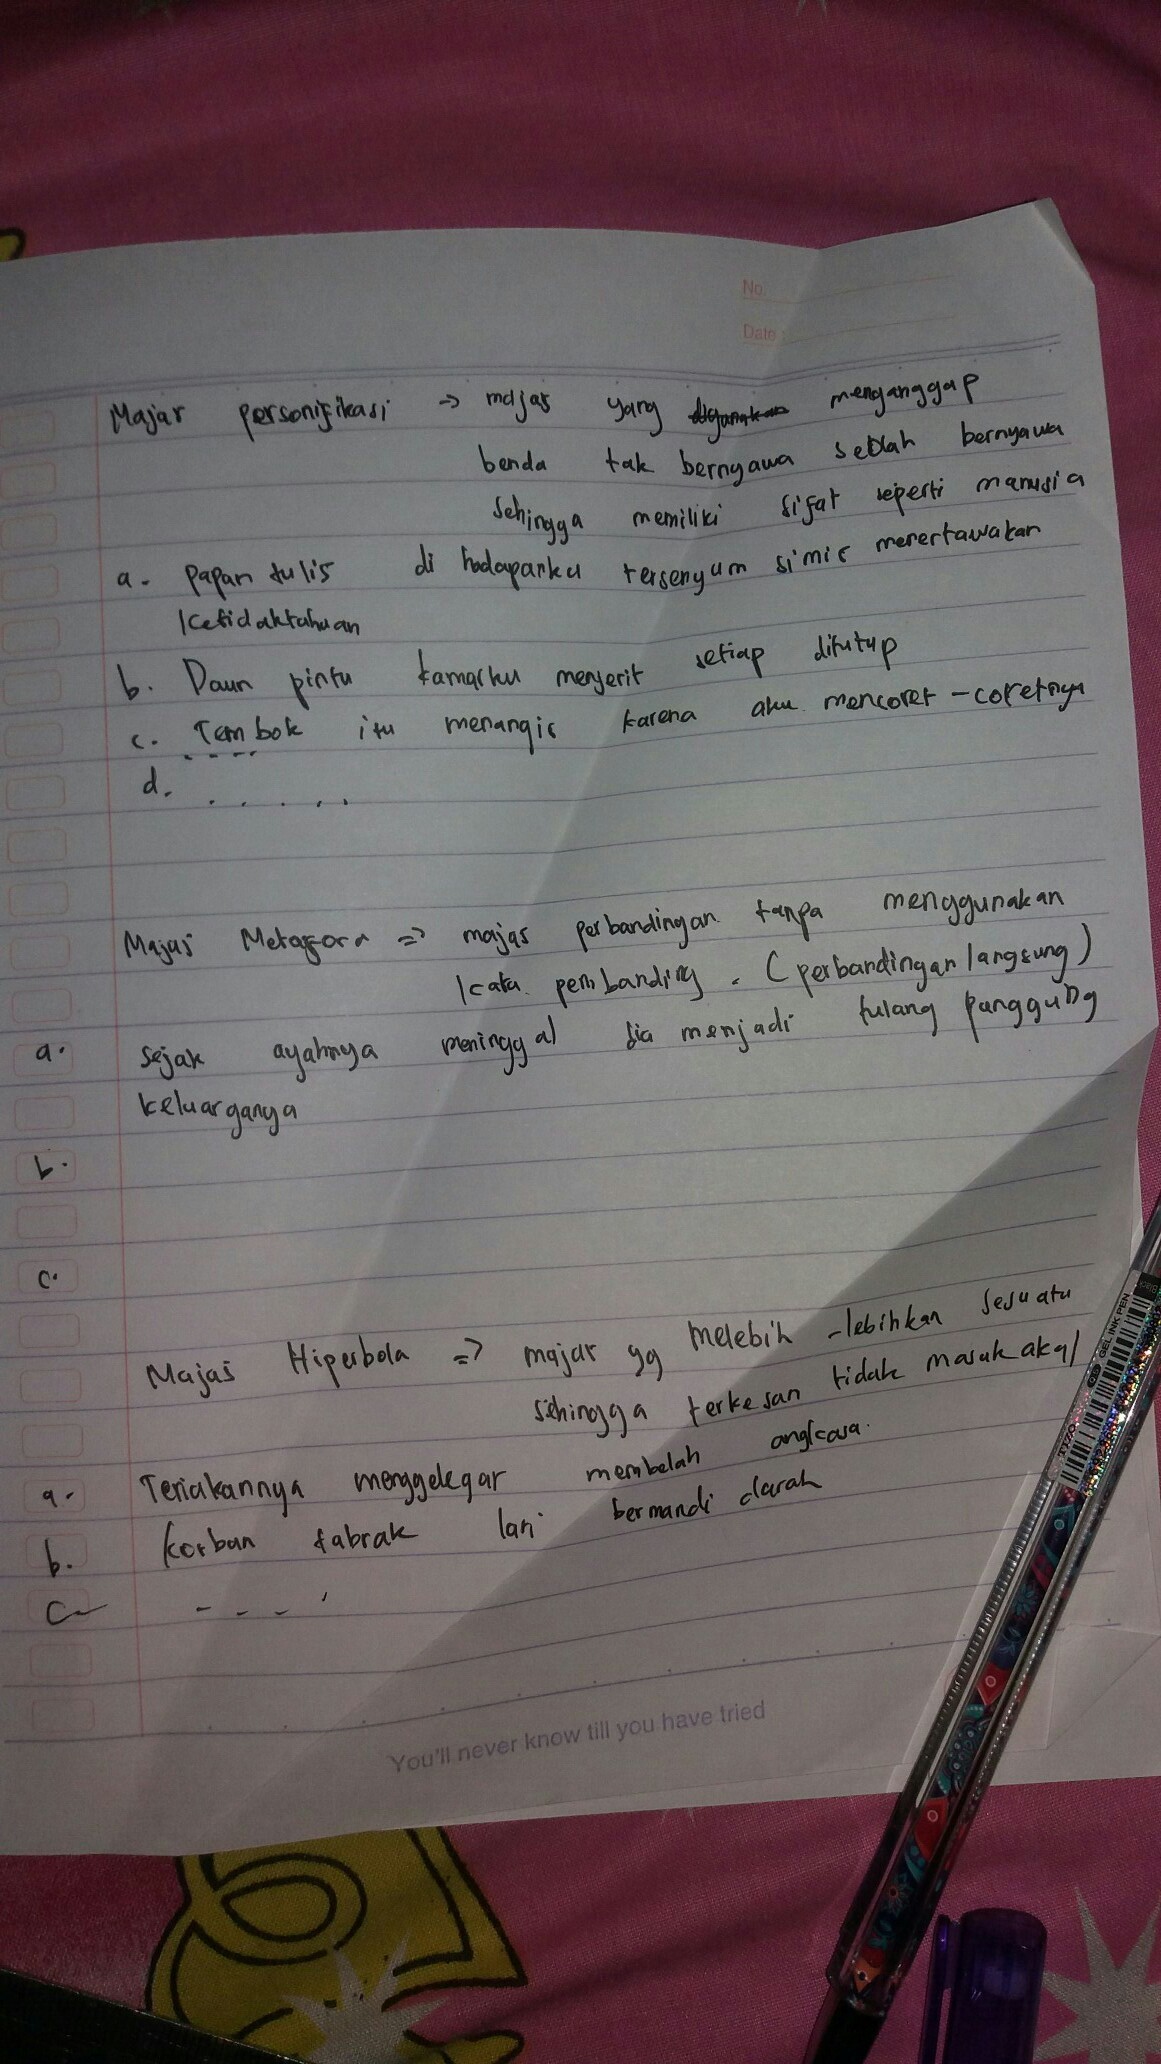 No.
Date
Majas personifikasi => majas yang menganggap
benda tak bernyawa seolah bernyawa
sehingga memiliki sifat seperti manusia
a. papan tulis di hadapanku tersenyum sinis menertawakan
ketidaktahuan
b. Daun pintu kamarku menjerit setiap ditutup
c. Tembok itu menangis karena aku mencoret-coretnya
d. . . . . .
Majas Metafora => majas perbandingan tanpa menggunakan
kata pembanding. (perbandingan langsung)
a. Sejak ayahnya meninggal dia menjadi tulang punggung
keluarganya
b.
c.
Majas Hiperbola => majas yg melebih-lebihkan sesuatu
sehingga terkesan tidak masuk akal
a. Teriakannya menggelegar membelah angkasa.
b. korban tabrak lari bermandi darah
c - - - -
You'll never know till you have tried
GEL INK PEN
TIZZO